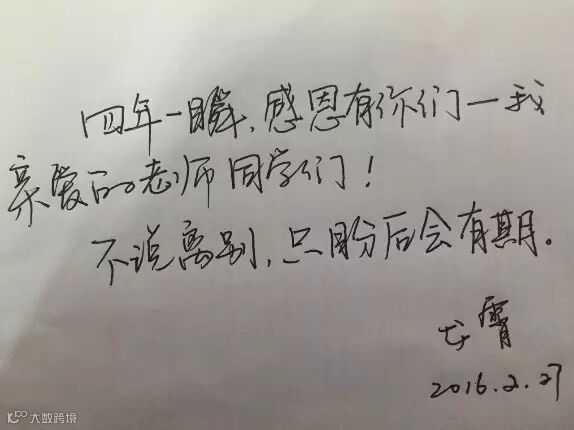 四年一瞬,感恩有你们一我
亲爱的老师同学们!
不说离别,只盼后会有期。
霄
2016.2.27
大数跨境